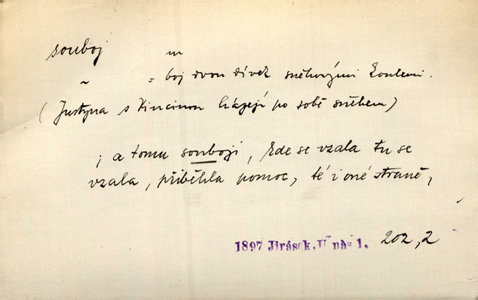 souboj m
~ = boj dvou dívek sněhovými koulemi.
(Justýna s Vincinou házejí po sobě sněhem)
; a tomu souboji, kde se vzala tu se
vzala, přiběhla pomoc, té i oné straně,
1897 Jirásek, U nás 1. 202,2